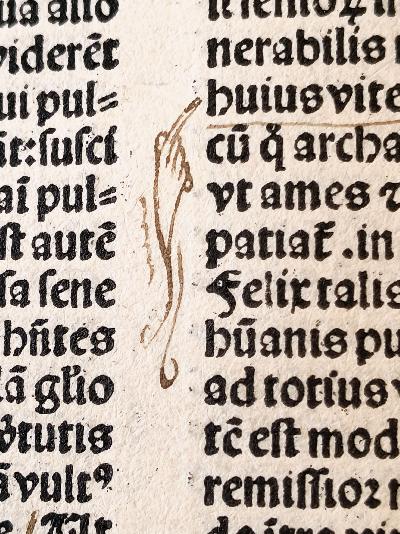 viderēt
ui pul⸗
āt:ſuſci
aī pul⸗
ſt autē
ſa ſene
hn̄tes
ꝟtutis
ā vultꝰ
nerabilis
huius vite
cū q̊ archa
vt ames ⁊
patiat᷑ .in
Felix talis
hūanis pu
ad totius v
tc̄ eſt mod
remiſſioꝛ